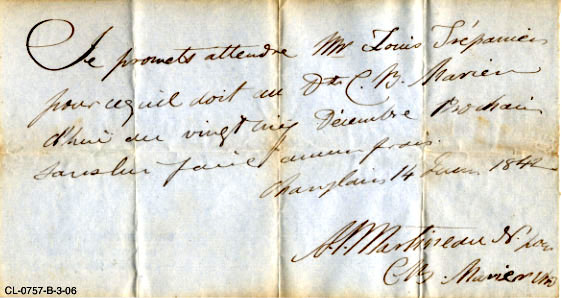 Je promets attendre Mr Louis Trépanier
pour ce qu'il doit au Dr. C. B. Marien
d'hui au vingt cinq Décembre Prochain
sans lui faire aucun frais.
Champlain 14 Juin 1842
Martineau N. pour
C. B. Marien
CL-0757-B-3-06